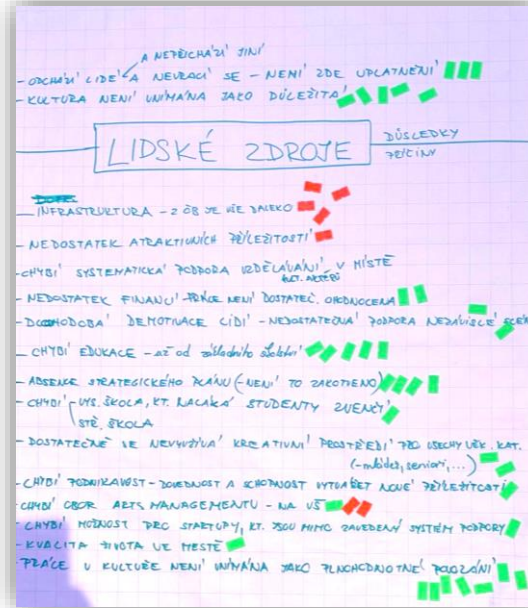 A NEPŘICHÁZÍ JINÍ
- ODCHÁZÍ LIDÉ A NEVRACÍ SE - NENÍ ZDE UPLATNĚNÍ
- KULTURA NENÍ VNÍMÁNA JAKO DŮLEŽITÁ
LIDSKÉ ZDROJE
DŮSLEDKY
PŘÍČINY
- INFRASTRUKTURA - Z ČB JE VŠE DALEKO
- NEDOSTATEK ATRAKTIVNÍCH PŘÍLEŽITOSTÍ
- CHYBÍ SYSTEMATICKÁ PODPORA VZDĚLÁVÁNÍ V MÍSTĚ
- NEDOSTATEK FINANCÍ - PRÁCE NENÍ DOSTATEČ. OHODNOCENA
- DLOUHODOBÁ DEMOTIVACE LIDÍ - NEDOSTATEČNÁ PODPORA NEZÁVISLÉ
- CHYBÍ EDUKACE - až od základního školství
- ABSENCE STRATEGICKÉHO PLÁNU (- NENÍ TO ZAKOTVENO)
- CHYBÍ - VYS. ŠKOLA, KT. NALÁKÁ STUDENTY ZVENČÍ
STŘ. ŠKOLA
- DOSTATEČNĚ SE NEVYUŽÍVÁ KREATIVNÍ PROSTŘEDÍ PRO VŠECHY VĚK. KAT.
(- mládež, senioři, ...)
- CHYBÍ PODNIKAVOST - DOVEDNOST A SCHOPNOST VYTVÁŘET NOVÉ PŘÍLEŽITOSTI
- CHYBÍ OBOR ARTS MANAGEMENTU - NA VŠ
- CHYBÍ MOŽNOST PRO STARTUPY, KT. JSOU MIMO ZAVEDENÝ SYSTÉM PODPORY
- KVALITA ŽIVOTA VE MĚSTĚ
- PRÁCE V KULTUŘE NENÍ VNÍMÁNA JAKO PLNOHODNOTNÉ POVOLÁNÍ